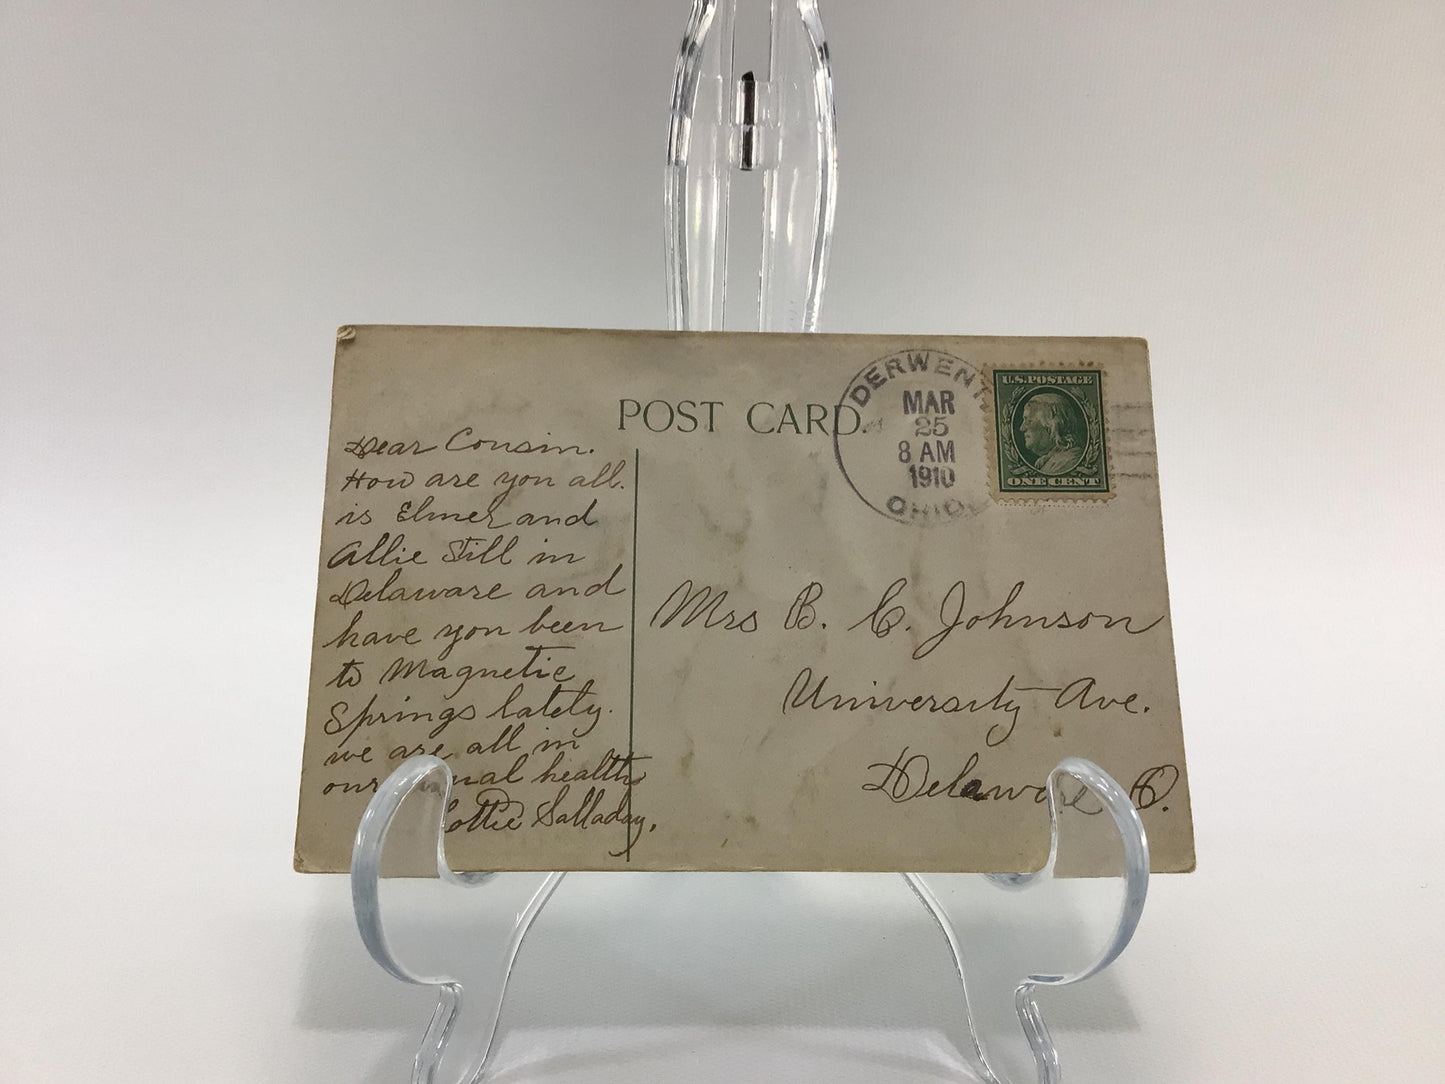 POST CARD.
DERWENT
MAR
25
8 AM
1910
OHIO
U.S. POSTAGE
ONE CENT
Dear Cousin.
How are you all.
is Elmer and
Allie Still in
Delaware and
have you been
to Magnetic
Springs lately.
we are all in
our usual health
Lottie Salladay.
Mrs B. C. Johnson
University Ave.
Delaware O.